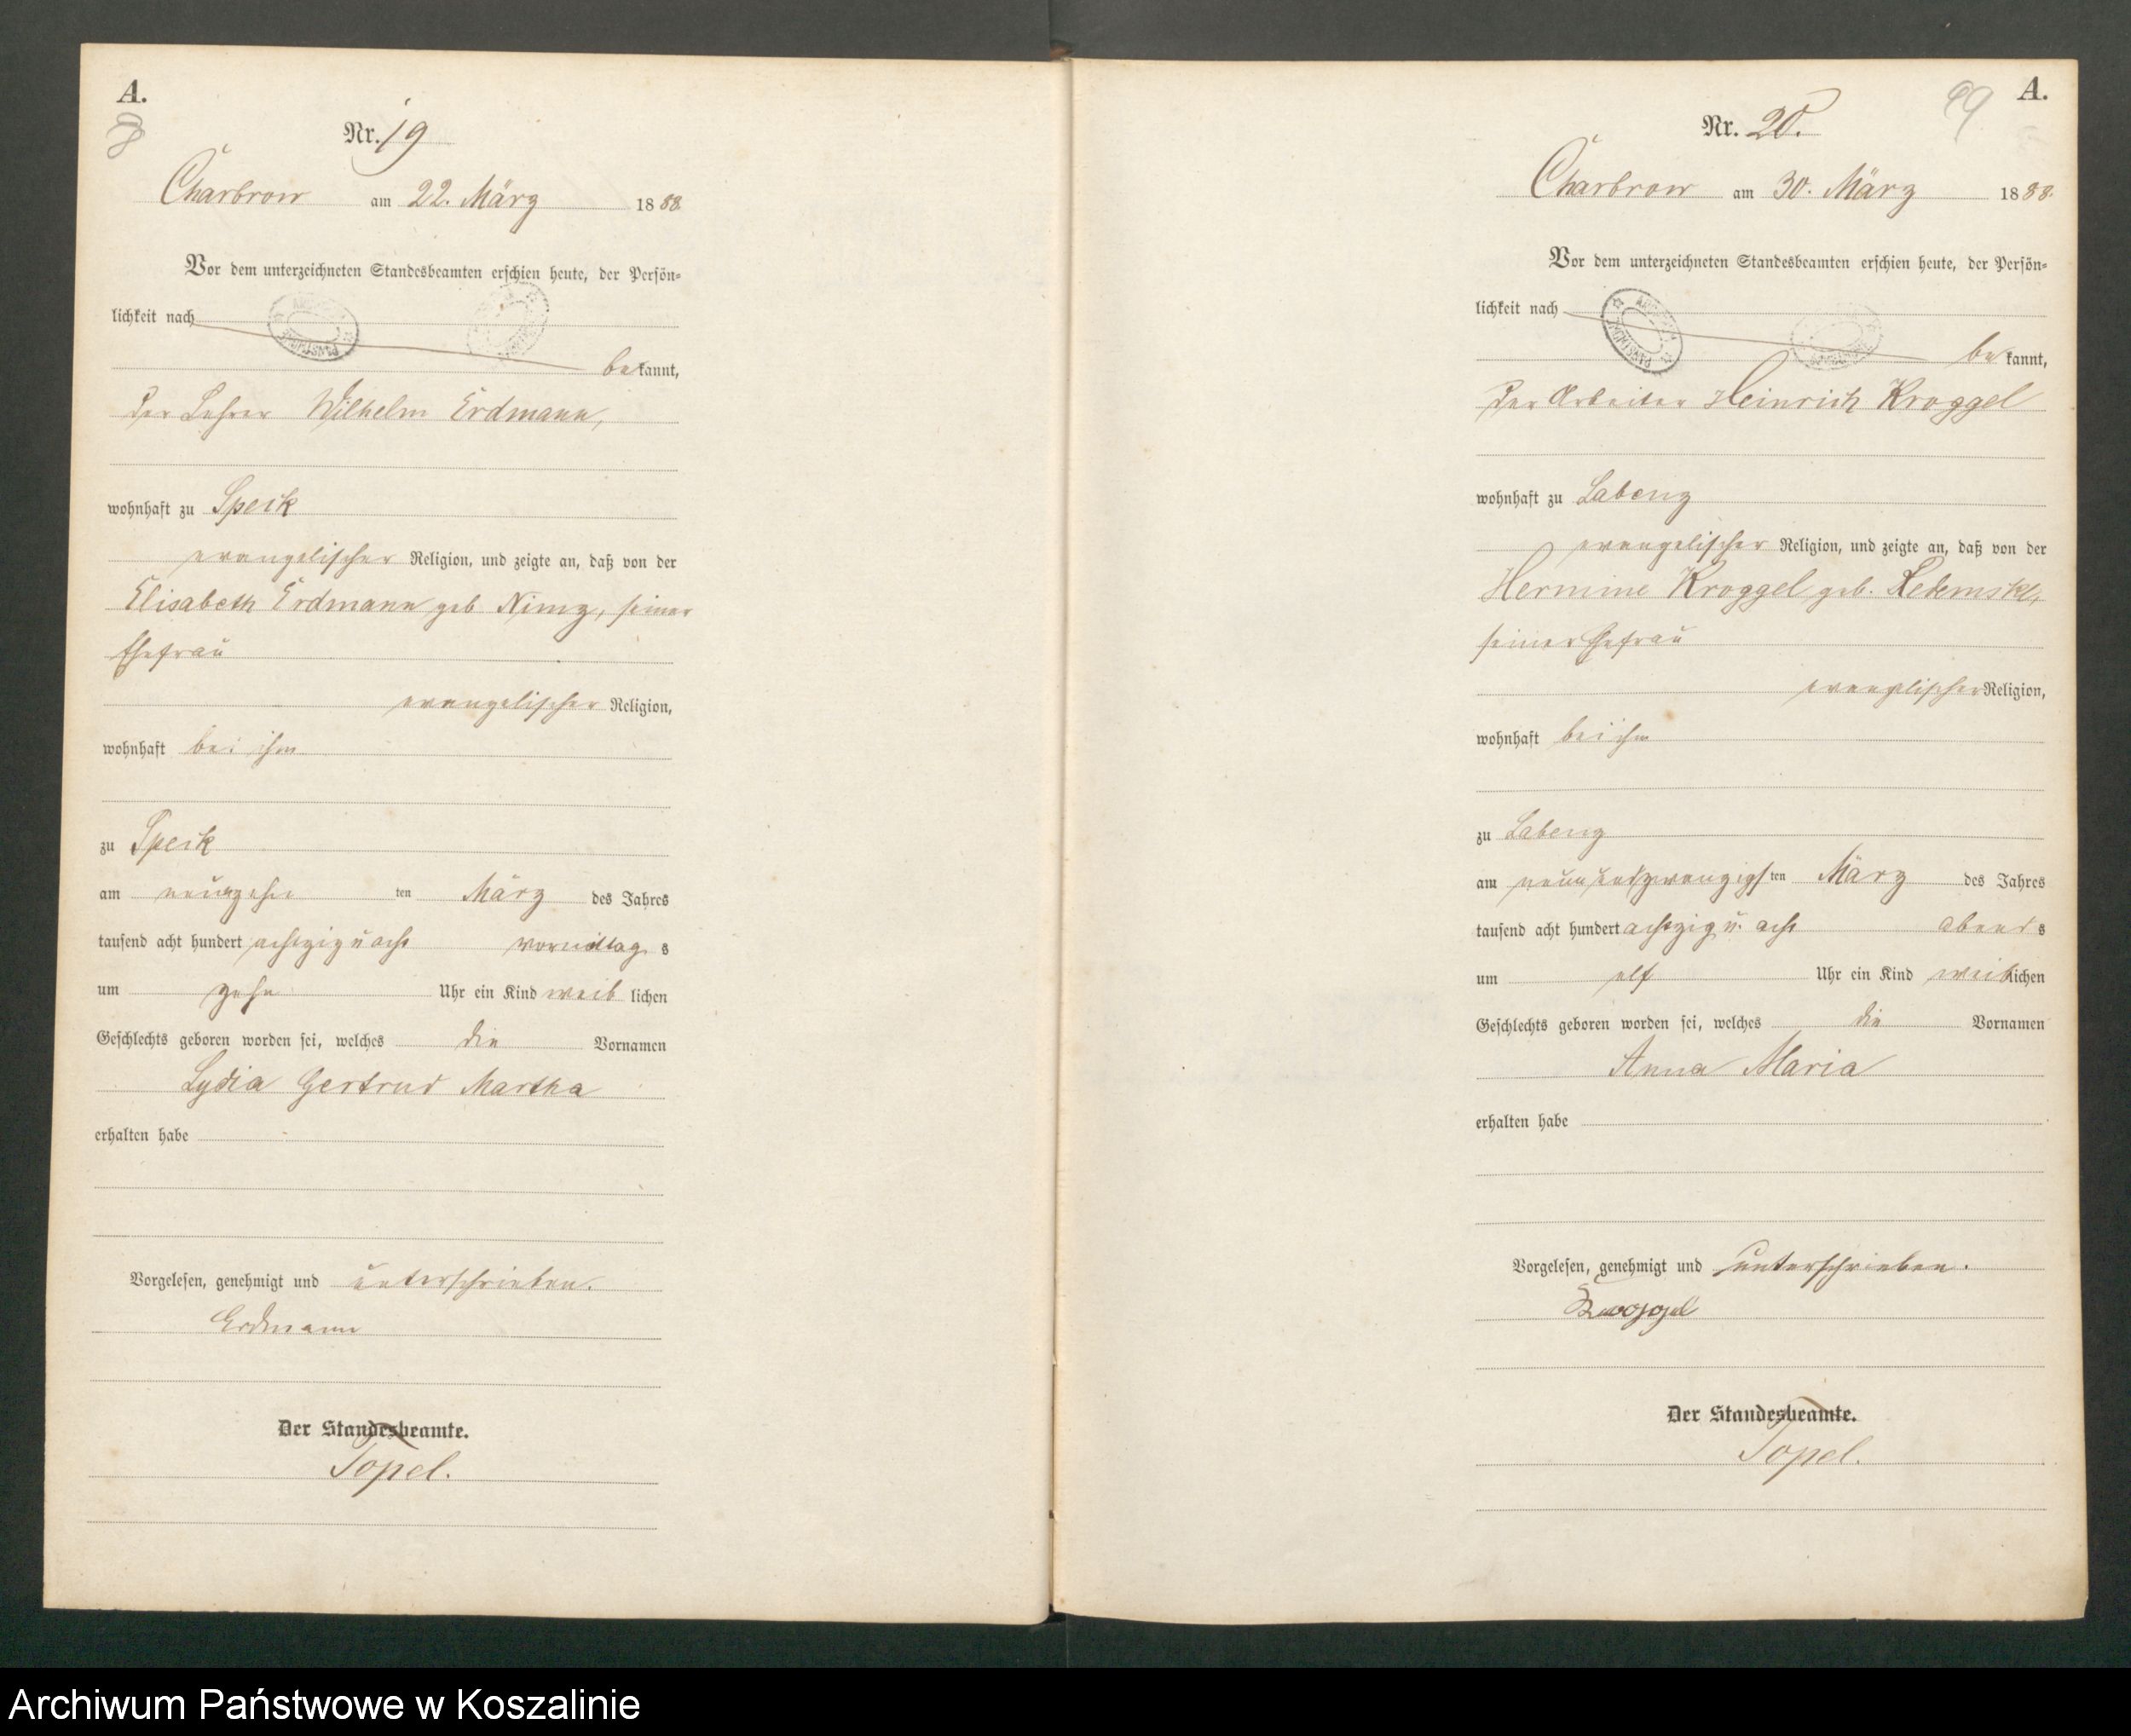 A.
Nr. 19
Charbrow am 22. März 1888.
Vor dem unterzeichneten Standesbeamten erschien heute, der Persön-
lichkeit nach
bekannt,
der Lehrer Wilhelm Erdmann,
wohnhaft zu Speck
evangelischer Religion, und zeigte an, daß von der
Elisabeth Erdmann geb Nimz, seiner
Ehefrau
evangelischer Religion,
wohnhaft bei ihm
zu Speck
am neunzehn ten März des Jahres
tausend acht hundert achtzig u acht vormittags
um zehn Uhr ein Kind weiblichen
Geschlechts geboren worden sei, welches die Vornamen
Lydia Gertrud Martha
erhalten habe
Vorgelesen, genehmigt und unterschrieben.
Erdmann
Der Standesbeamte.
Topel.
99 A.
Nr. 20.
Charbrow am 30. März 1888.
Vor dem unterzeichneten Standesbeamten erschien heute, der Persön-
lichkeit nach
bekannt,
der Arbeiter Heinrich Kroggel
wohnhaft zu Labenz
evangelischer Religion, und zeigte an, daß von der
Hermine Kroggel geb.
seiner Ehefrau
evangelischer Religion,
wohnhaft bei ihm
zu Labenz
am neunundzwanzigsten März des Jahres
tausend acht hundert achtzig u. acht abends
um elf Uhr ein Kind weiblichen
Geschlechts geboren worden sei, welches die Vornamen
Anna Maria
erhalten habe
Vorgelesen, genehmigt und unterschrieben.
Kroggel
Der Standesbeamte.
Topel.
Archiwum Państwowe w Koszalinie